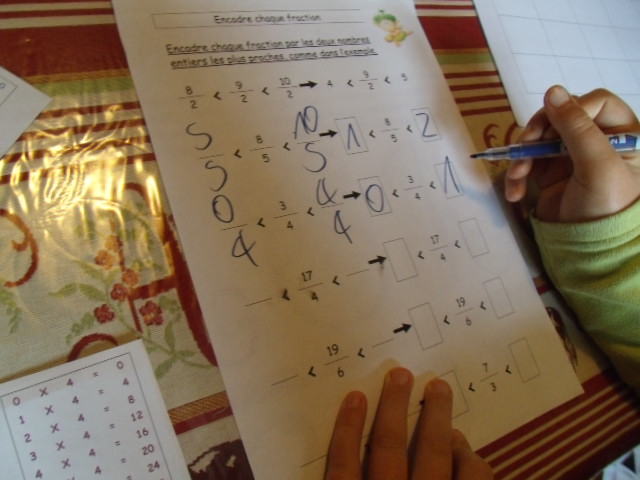 Encadre chaque fraction
Encadre chaque fraction par les deux nombres
entiers les plus proches, comme dans l'exemple.
8/2 < 9/2 < 10/2 → 4 < 9/2 < 5
5/5 < 8/5 < 10/5 → 1 < 8/5 < 2
0/4 < 3/4 < 4/4 → 0 < 3/4 < 1
__ < 17/4 < __ → < 17/4 <
__ < 19/6 < __ → < 19/6 <
< 7/3 <
0 x 4 = 0
1 x 4 = 4
2 x 4 = 8
3 x 4 = 12
4 x 4 = 16
x 4 = 20
= 24